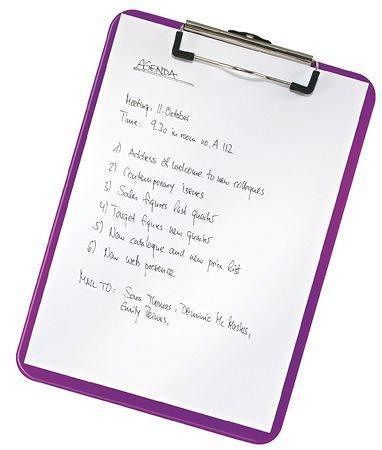 AGENDA
Meeting: 11. October
Time: 9.30 in room no. A 112
1) Address of welcome to new collegues
2) Contemporary Issues
3) Sales figures last quarter
4) Target figures new quarter
5) New catalogue and new price list
6) New web presence
MAIL TO: Sara Thomas, Dominic Mc
Emily